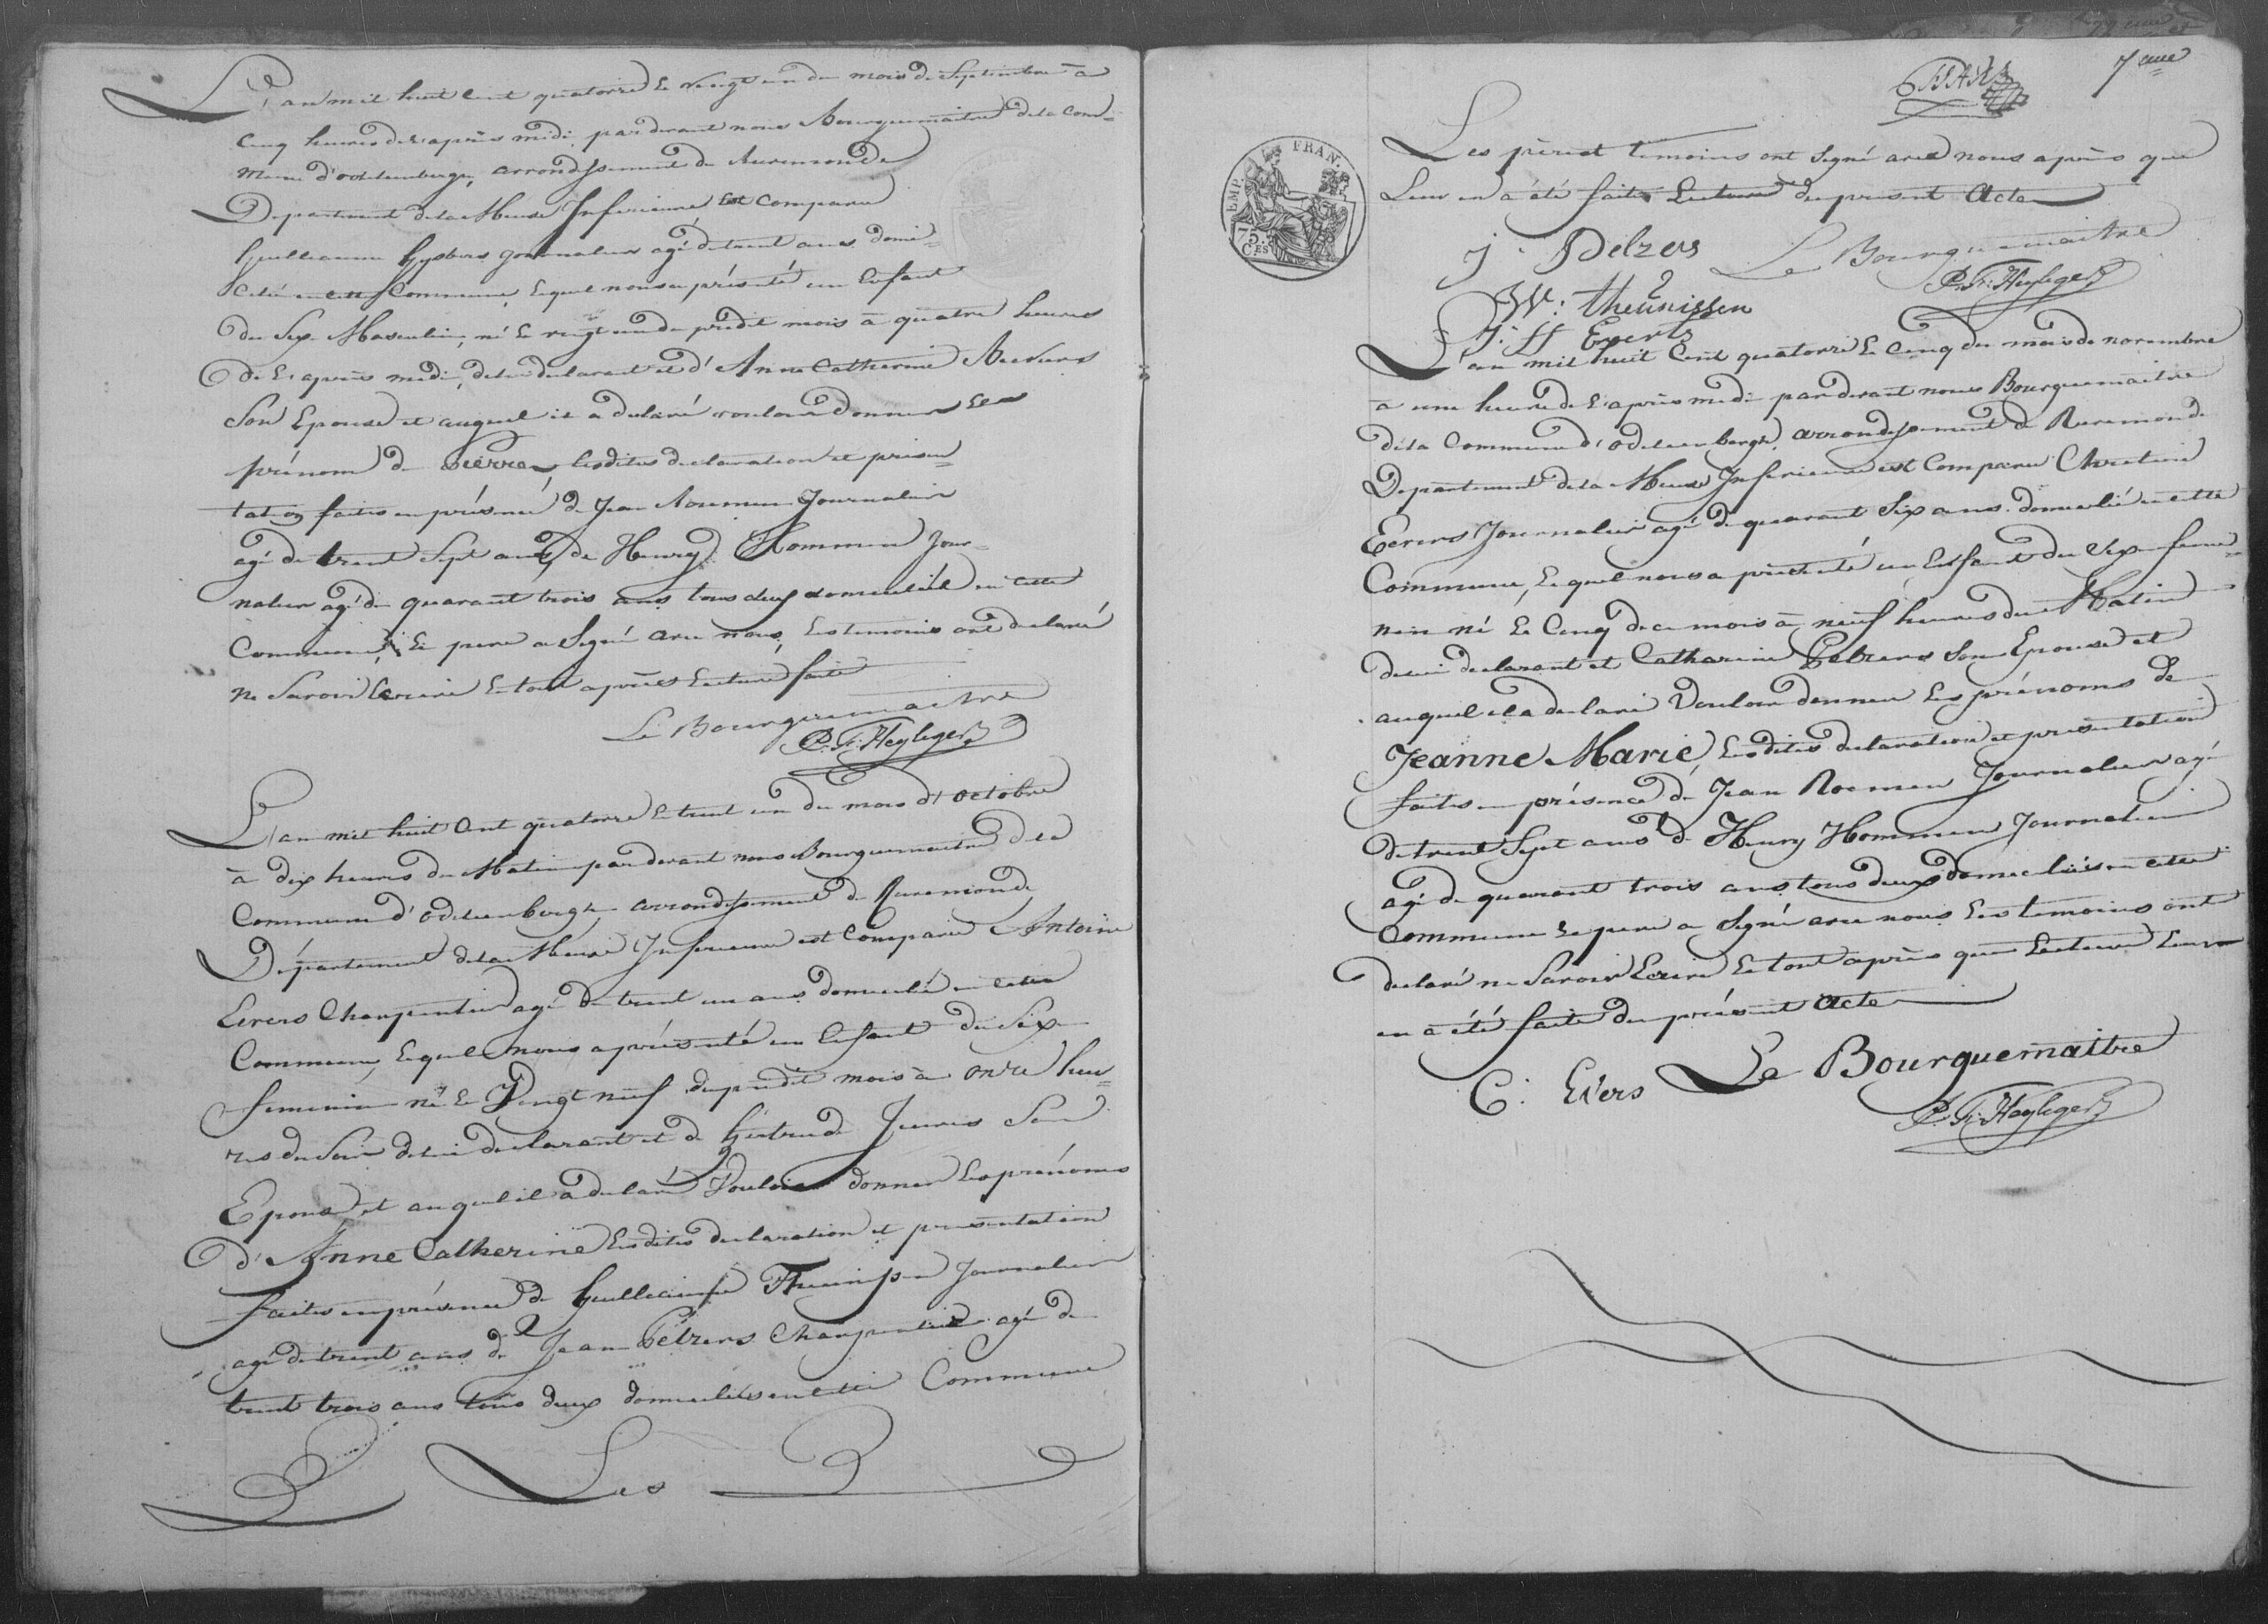 L'an mil huit cent quatorze le vingt un du mois de Septembre à
cinq heures de l'après midi par devant nous Bourguemaitre de la Com=
mune d'odilienberge, arrondissement de Ruremonde
Departement de la Meuse Inferieure est comparu
Guilleaume Gysbers journalier agé de trent ans domi=
cilié en cette Commune, lequel nous a présenté un Enfant
du Sexe Masculin, né le vingt un du predit mois à quatre heures
de l'après midi, de lui declarant et d'Anne Catherine
Son Epouse et auquel il a declaré vouloir donner les
prénom de Pierre, lesdites declaration et présen=
tation faites en présence de Jean Roemen Journalier
agé de trent Sept ans, de Henry Hommen Jour=
nalier agé de quarant trois ans tous deux domicilié en cette
Commune, le pere a Signé avec nous, les temoins ont declaré
ne Savoir Ecrire le tout après lecture faite
Le Bourguemaitre
P. F. Heyligers
L'an mil huit Cent quatorze le trent un du mois d'Octobre
à dix heures du Matin par devant nous Bourguemaitre de la
Commune d'Odilienbergh arrondissement de Ruremonde
Département de la Meuse Inferieure est Comparu Antoine
Evers Charpentier agé de trent un ans domicilié en cette
Commune, lequel nous a présenté un Enfant du Sexe
feminin né le Vingt neuf du prédit mois à onze heu=
res du Soir de lui declarant et de Gertrude Son
Epouse et auquel il à declaré Vouloir donner les prénoms
d'Anne Catherine lesdites declaration et presentation
faites en présence de Guilleaume Theunissen Journalier
agé de trent ans de Jean Pelzers Charpentier agé de
trent trois ans tous deux domiciliés en cette Commune
Les
7eme
Les père et temoins ont Signé avec nous après que
Leur en a été faite Lecture du present Acte
EMP. FRAN.
75 CES
J. Pelzers Le Bourguemaitre
P. F. Heyligers
W: theunissen
J: H Evers
L'an mil huit Cent quatorze le Cinq du mois de novembre
à une heure de l'après midi par devant nous Bourguemaitre
de la Commune d'Odilienbergh, arrondissement de Ruremonde
Departement de la Meuse Inferieure est Comparu Chretien
Evers Journalier agé de quarant Six ans domicilié en cette
Commune, lequel nous a présenté un Enfant du Sexe femi=
nin né le Cinq de ce mois à neuf heures du Matin
de lui declarant et Catharine Pelzers Son Epouse et
auquel il a declaré Vouloir donner les prénoms de
Jeanne Marie, lesdites declaration et presentation
faites en présence de Jean Roemen Journalier agé
de trent Sept ans de Henry Hommen Journalier
agé de quarant trois ans tous deux domiciliés en cette
Commune le pere a Signé avec nous les temoins ont
declaré ne Savoir Ecrire le tout après que Lecture leur
en a été faite du présent Acte
C: Evers Le Bourguemaitre
P. F. Heyligers